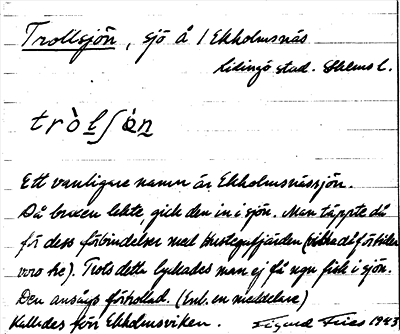 Trollsjön, sjö å / Ekholmsnäs
Lidingö stad. Sthlms l.
tròlʃö̀n
Ett vanligare namn är Ekholmsnässjön.
Då braxen lekte gick den in i sjön. Man täppte då
för dess förbindelser med Hustegafjärden (vilka då förbilen
voro tre). Trots detta lyckades man ej få ngn fisk i sjön.
Den ansågs förtrollad. (Enl. en meddelare)
Kallades förr Ekholmsviken. Sigurd Fries 1943